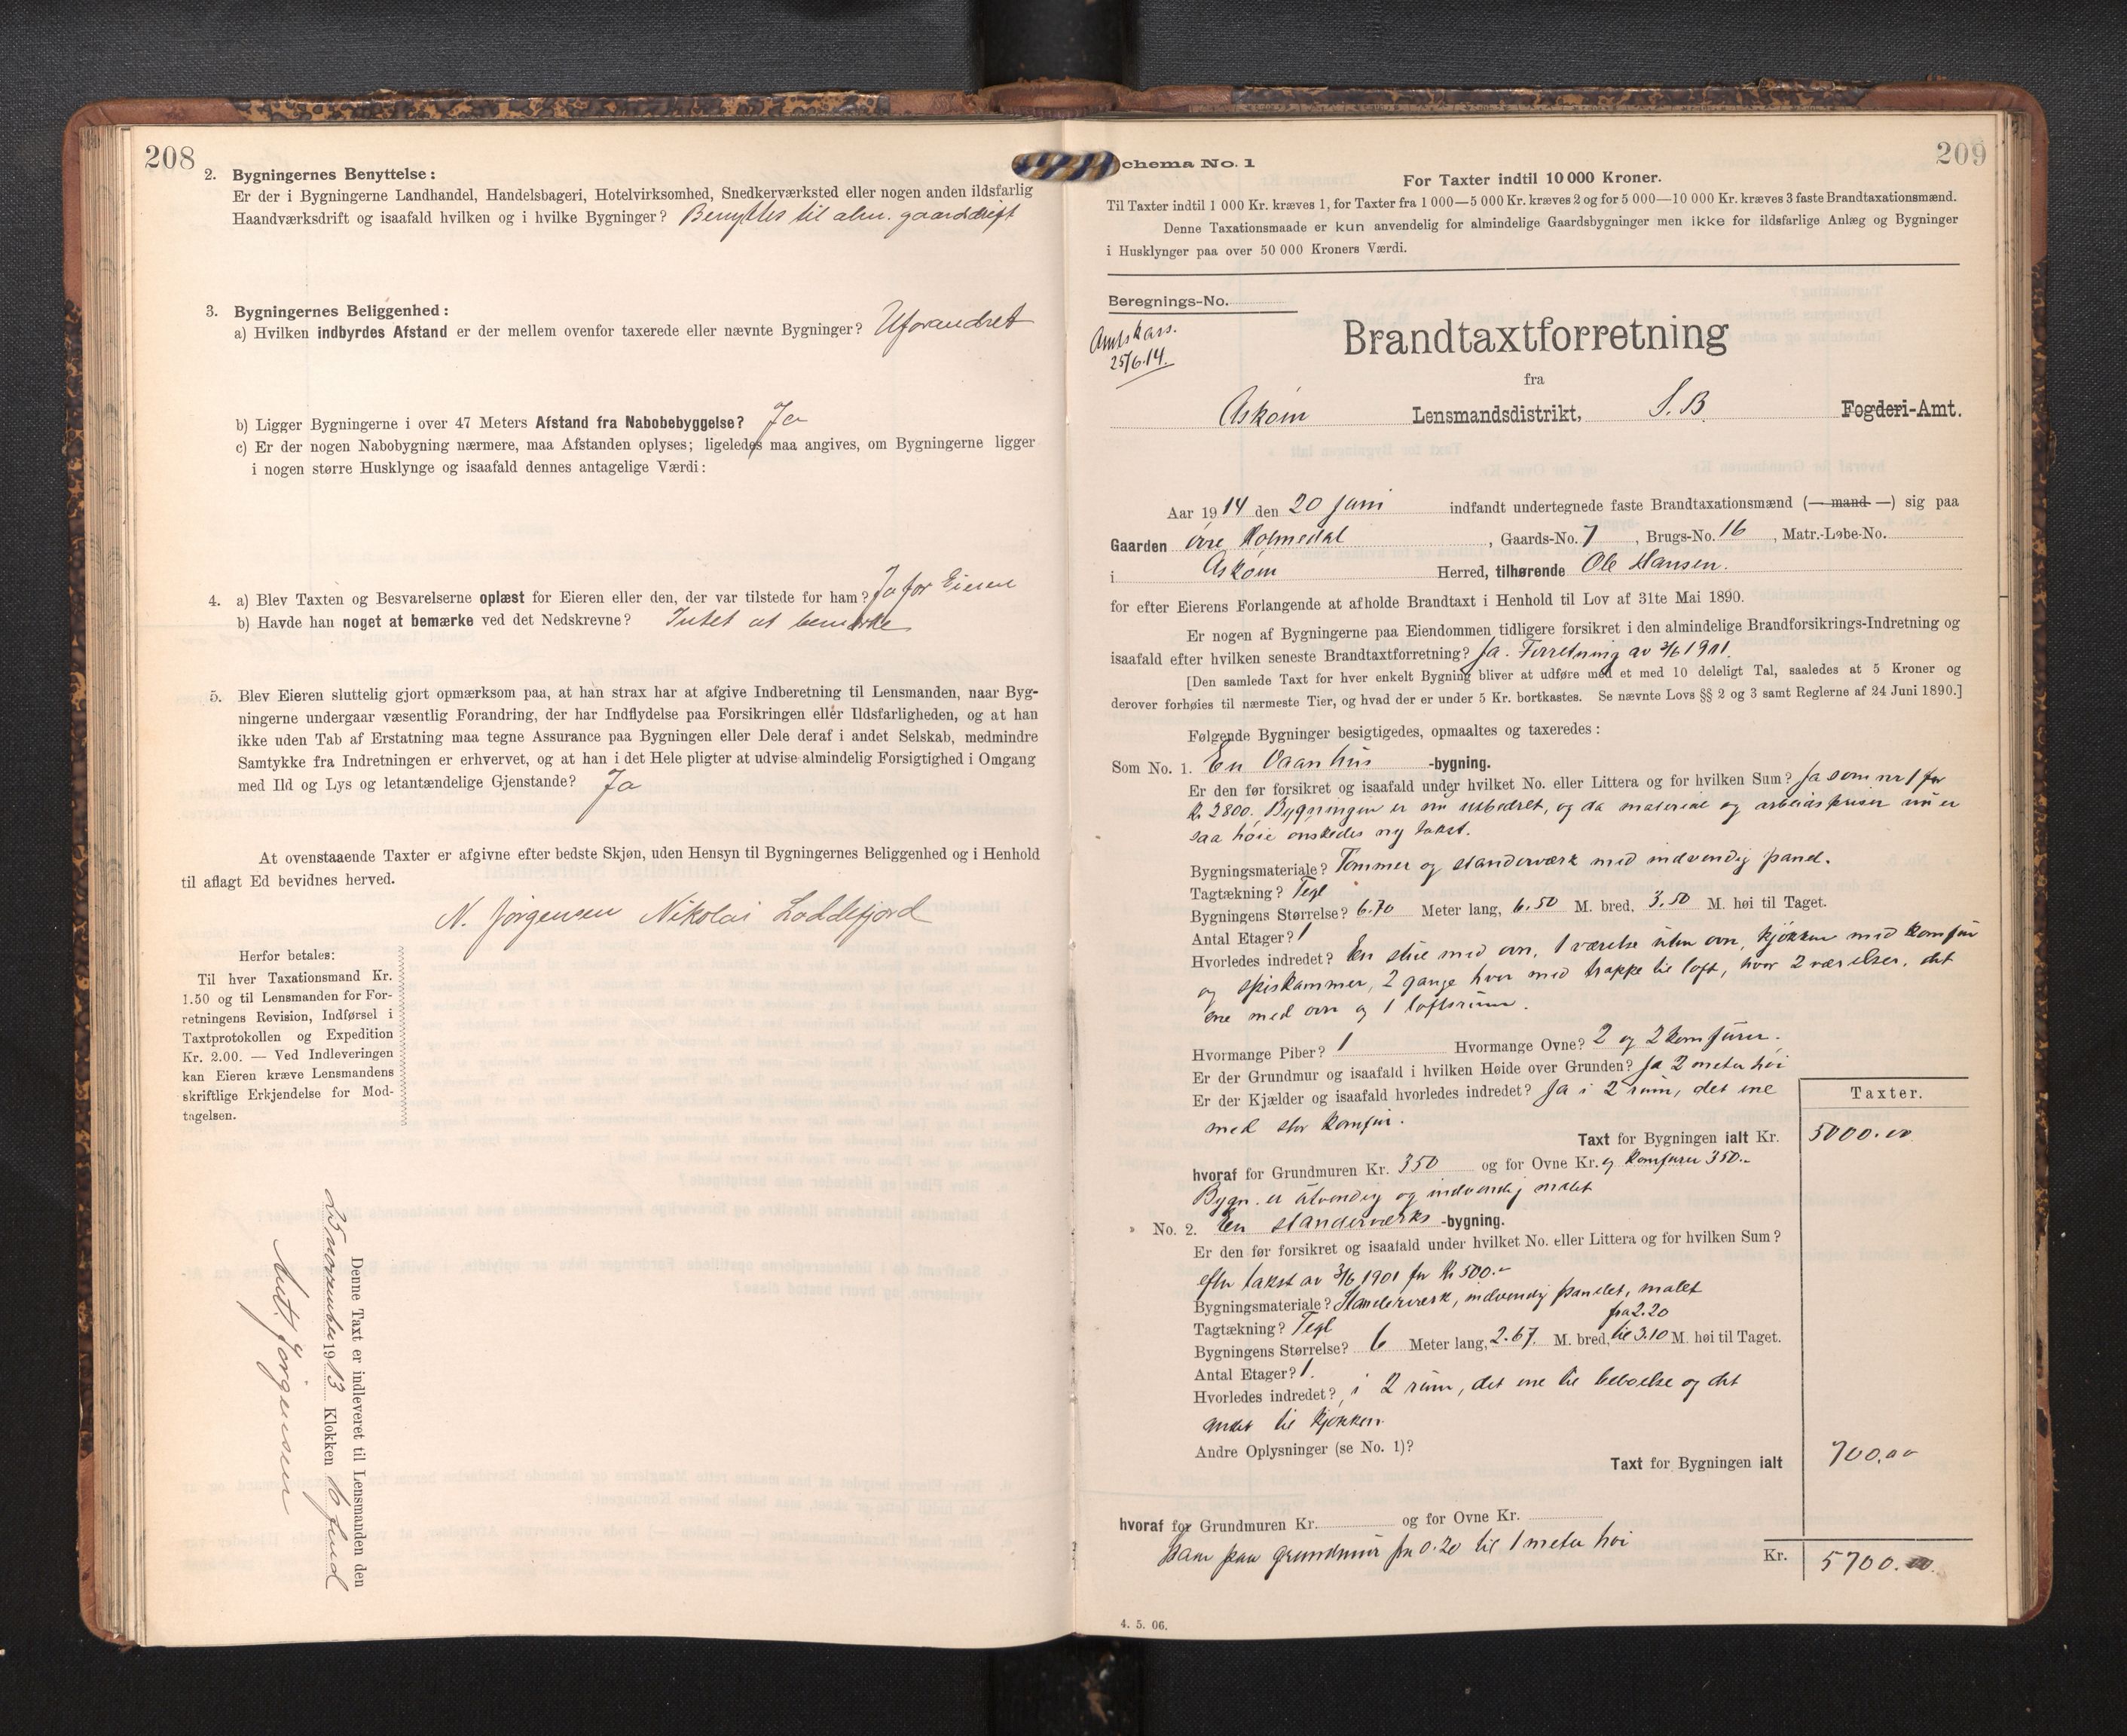 208
2. Bygningernes Benyttelse:
Er der i Bygningerne Landhandel, Handelsbageri, Hotelvirksomhed, Snedkerværksted eller nogen anden ildsfarlig
Haandværksdrift og isaafald hvilken og i hvilke Bygninger? Benyttes til alm. gaardsdrift
3. Bygningernes Beliggenhed:
a) Hvilken indbyrdes Afstand er der mellem ovenfor taxerede eller nævnte Bygninger? Uforandret
b) Ligger Bygningerne i over 47 Meters Afstand fra Nabobebyggelse? Ja
c) Er der nogen Nabobygning nærmere, maa Afstanden oplyses; ligeledes maa angives, om Bygningerne ligger
i nogen større Husklynge og isaafald dennes antagelige Værdi:
4. a) Blev Taxten og Besvarelserne oplæst for Eieren eller den, der var tilstede for ham? Ja for Eieren
b) Havde han noget at bemærke ved det Nedskrevne? Intet at bemerke
5. Blev Eieren sluttelig gjort opmærksom paa, at han strax har at afgive Indberetning til Lensmanden, naar Byg-
ningerne undergaar væsentlig Forandring, der har Indflydelse paa Forsikringen eller Ildsfarligheden, og at han
ikke uden Tab af Erstatning maa tegne Assurance paa Bygningen eller Dele deraf i andet Selskab, medmindre
Samtykke fra Indretningen er erhvervet, og at han i det Hele pligter at udvise almindelig Forsigtighed i Omgang
med Ild og Lys og letantændelige Gjenstande? Ja
At ovenstaaende Taxter er afgivne efter bedste Skjøn, uden Hensyn til Bygningernes Beliggenhed og i Henhold
til aflagt Ed bevidnes herved.
N. Jørgensen Nikolai Loddefjord
Herfor betales:
Til hver Taxationsmand Kr.
1.50 og til Lensmanden for For-
retningens Revision, Indførsel i
Taxtprotokollen og Expedition
Kr. 2.00. — Ved Indleveringen
kan Eieren kræve Lensmandens
skriftlige Erkjendelse for Mod-
tagelsen.
Denne Taxt er indleveret til Lensmanden den
25 november 1913 Klokken 10 fmd
Ant. Jörgensen
209
chema No. 1
For Taxter indtil 10 000 Kroner.
Til Taxter indtil 1 000 Kr. kræves 1, for Taxter fra 1 000—5 000 Kr. kræves 2 og for 5 000—10 000 Kr. kræves 3 faste Brandtaxationsmænd.
Denne Taxationsmaade er kun anvendelig for almindelige Gaardsbygninger men ikke for ildsfarlige Anlæg og Bygninger
i Husklynger paa over 50 000 Kroners Værdi.
Beregnings-No.
Amtskass.
25/6.14.
Brandtaxtforretning
fra
Askøm Lensmandsdistrikt, S.B Fogderi-Amt.
Aar 1914 den 20 juni indfandt undertegnede faste Brandtaxationsmænd (— mand —) sig paa
Gaarden øvre Holmedal, Gaards-No. 7, Brugs-No. 16, Matr.-Løbe-No.
i Askøm Herred, tilhørende Ole Hansen.
for efter Eierens Forlangende at afholde Brandtaxt i Henhold til Lov af 31te Mai 1890.
Er nogen af Bygningerne paa Eiendommen tidligere forsikret i den almindelige Brandforsikrings-Indretning og
isaafald efter hvilken seneste Brandtaxtforretning? Ja. Forretning av 3/6 1901
[Den samlede Taxt for hver enkelt Bygning bliver at udføre med et med 10 deleligt Tal, saaledes at 5 Kroner og
derover forhøies til nærmeste Tier, og hvad der er under 5 Kr. bortkastes. Se nævnte Lovs §§ 2 og 3 samt Reglerne af 24 Juni 1890.]
Følgende Bygninger besigtigedes, opmaaltes og taxeredes:
Som No. 1. En Vaanhus -bygning.
Er den før forsikret og isaafald under hvilket No. eller Littera og for hvilken Sum? Ja som nr 1 for
kr. 2800. Bygningen er nu utbedret, og da materiale og arbeidspriser nu er
saa høie ønskedes ny takst.
Bygningsmateriale? Tømmer og standerværk med indvendig panel.
Tagtækning? Tegl
Bygningens Størrelse? 6.70 Meter lang, 6.50 M. bred, 3.50 M. høi til Taget.
Antal Etager? 1
Hvorledes indredet? En stue med ovn, 1 værelse uten ovn, kjøkken med komfür
og spiskammer, 2 gange hvor med trappe til loft, hvor 2 værelser, det
ene med ovn og 1 loftsrum.
Hvormange Piber? 1 Hvormange Ovne? 2 og 2 komfürer.
Er der Grundmur og isaafald i hvilken Høide over Grunden? Ja 2 meter høi
Er der Kjælder og isaafald hvorledes indredet? Ja i 2 rum, det ene
med stor komfür.
Taxter.
Taxt for Bygningen ialt Kr. 5000.00
hvoraf for Grundmuren Kr. 350 og for Ovne Kr. og komfurer 350.-
Bygn. er utvendig og indvendig malet
" No. 2. En standerværks -bygning.
Er den før forsikret og isaafald under hvilket No. eller Littera og for hvilken Sum?
efter takst av 3/6 1901 for kr 500.-
Bygningsmateriale? Standerværk, indvendig panelet, malet
Tagtækning? Tegl fra 2.20
Bygningens Størrelse? 6 Meter lang, 2.67. M. bred, til 3.10 M. høi til Taget.
Antal Etager? 1.
Hvorledes indredet? i 2 rum, det ene til beboelse og det
andet til kjøkken.
Andre Oplysninger (se No. 1)?
Taxt for Bygningen ialt 700.00
hvoraf for Grundmuren Kr. og for Ovne Kr.
paa grundmür fra 0.20 til 1 meter høi
Kr. 5700.00.
4. 5. 06.